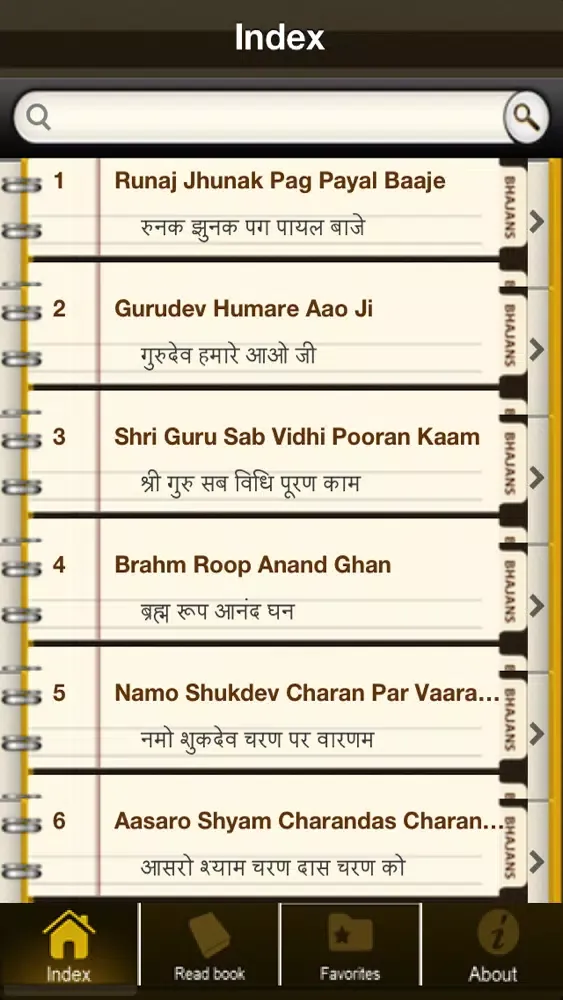 Index
1 Runaj Jhunak Pag Payal Baaje
रुनक झुनक पग पायल बाजे
BHAJANS
2 Gurudev Humare Aao Ji
गुरुदेव हमारे आओ जी
BHAJANS
3 Shri Guru Sab Vidhi Pooran Kaam
श्री गुरु सब विधि पूरण काम
BHAJANS
4 Brahm Roop Anand Ghan
ब्रह्म रूप आनंद घन
BHAJANS
5 Namo Shukdev Charan Par Vaara...
नमो शुकदेव चरण पर वारणम
BHAJANS
6 Aasaro Shyam Charandas Charan...
आसरो श्याम चरण दास चरण को
BHAJANS
Index Read book Favorites About